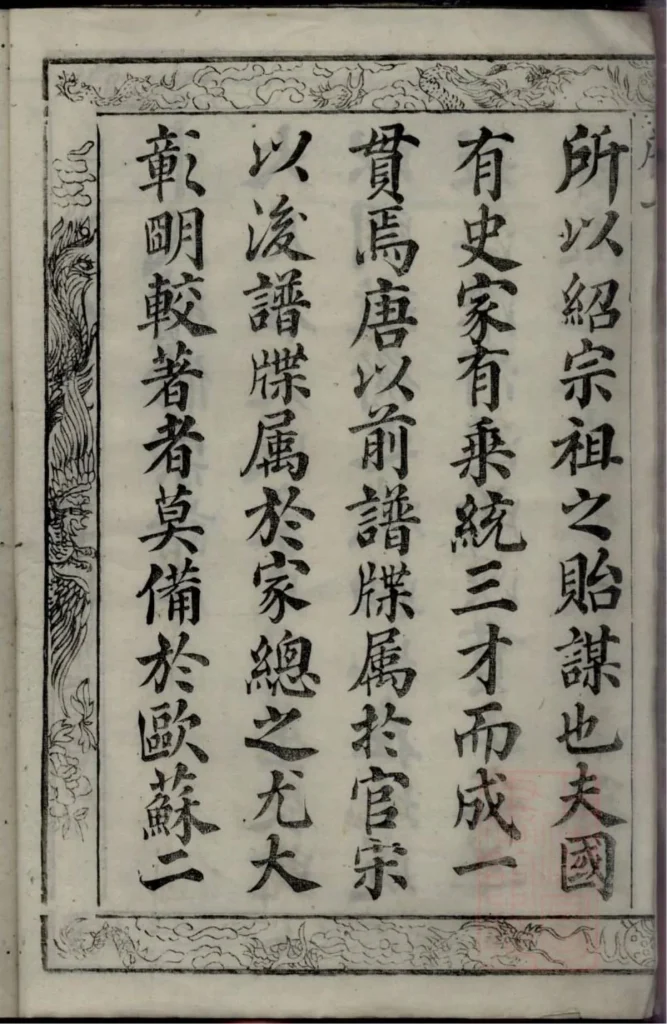 所以紹宗祖之貽謀也夫國
有史家有乘統三才而成一
貫焉唐以前譜牒属於官宋
以浚譜牒属於家總之尤大
彰明較著者莫備於歐蘇二